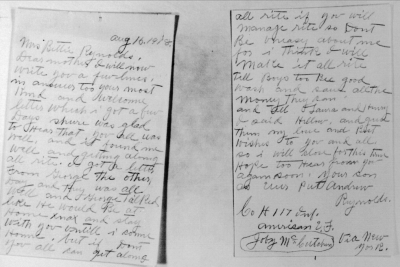 aug 16, 1918
Mrs Bittie Reynolds,
Dear mother I will now
Write you a few lines.
in answer too your most
Kind and Welcome
letter Which i got a few
Days shure was glad
to Hear that you all was
Well and it found me
Well and getting along
all rite. I got a letter
From George the other
Day and they was all
Well and George talked
like He would Be at
Home and stay
With you untill i come
Home. but if Dont
you all can get along
all rite if you will
manage rite so Dont
Be uneasy about me
for i think i will
make it all rite
tell Boys too Be good
and save all the
money they can
and tell Jana and Henry
I said Hillow. and give
them my love and Best
Wishes to you and all
so i will close for this time
Hope too Hear from you
again soon. Your son
as ever Pvt Andrew
Reynolds.
Co H 117 Inf.
american E.F.
Via New
York.
Toby McCutchen